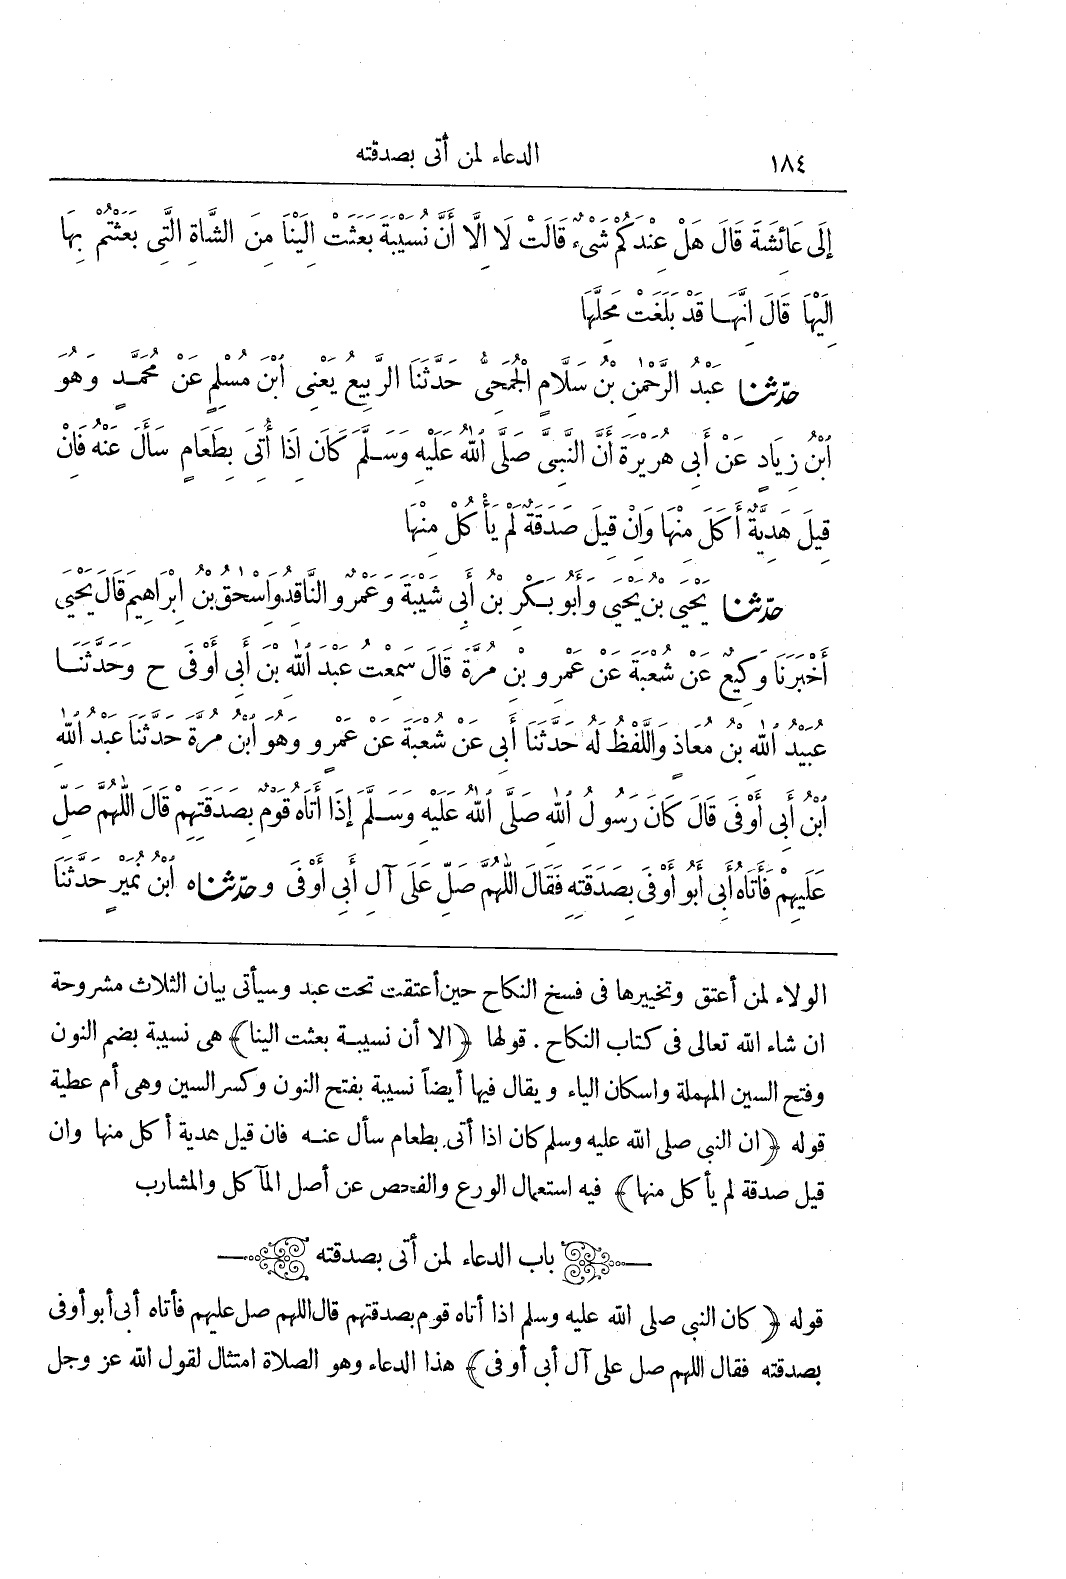 ١٨٤ الدعاء لمن أتى بصدقته
إِلَى عَائِشَةَ قَالَ هَلْ عِنْدَكُمْ شَىْءٌ قَالَتْ لَا اِلَّا أَنَّ نُسَيْبَةَ بَعَثَتْ اِلَيْنَا مِنَ الشَّاةِ الَّتِى بَعَثْتُمْ بِهَا
اِلَيْهَا قَالَ اِنَّهَا قَدْ بَلَغَتْ مَحِلَّهَا
حدّثنا عَبْدُ الرَّحْمٰنِ بْنُ سَلَّامٍ الْجُمَحِىُّ حَدَّثَنَا الرَّبِيعُ يَعْنِى ابْنَ مُسْلِمٍ عَنْ مُحَمَّدٍ وَهُوَ
ابْنُ زِيَادٍ عَنْ أَبِى هُرَيْرَةَ أَنَّ النَّبِىَّ صَلَّى اللهُ عَلَيْهِ وَسَلَّمَ كَانَ اِذَا أُتِىَ بِطَعَامٍ سَأَلَ عَنْهُ فَاِنْ
قِيلَ هَدِيَّةٌ أَكَلَ مِنْهَا وَاِنْ قِيلَ صَدَقَةٌ لَمْ يَأْكُلْ مِنْهَا
حدّثنا يَحْيَى بْنُ يَحْيَى وَأَبُو بَكْرِ بْنُ أَبِى شَيْبَةَ وَعَمْرٌو النَّاقِدُ وَاِسْحٰقُ بْنُ اِبْرَاهِيمَ قَالَ يَحْيَى
أَخْبَرَنَا وَكِيعٌ عَنْ شُعْبَةَ عَنْ عَمْرِو بْنِ مُرَّةَ قَالَ سَمِعْتُ عَبْدَ اللهِ بْنَ أَبِى أَوْفَى ح وَحَدَّثَنَا
عُبَيْدُ اللهِ بْنُ مُعَاذٍ وَاللَّفْظُ لَهُ حَدَّثَنَا أَبِى عَنْ شُعْبَةَ عَنْ عَمْرٍو وَهُوَ ابْنُ مُرَّةَ حَدَّثَنَا عَبْدُ اللهِ
ابْنُ أَبِى أَوْفَى قَالَ كَانَ رَسُولُ اللهِ صَلَّى اللهُ عَلَيْهِ وَسَلَّمَ إِذَا أَتَاهُ قَوْمٌ بِصَدَقَتِهِمْ قَالَ اللّٰهُمَّ صَلِّ
عَلَيْهِمْ فَأَتَاهُ أَبِى أَبُو أَوْفَى بِصَدَقَتِهِ فَقَالَ اللّٰهُمَّ صَلِّ عَلَى آلِ أَبِى أَوْفَى و حدّثناه ابْنُ نُمَيْرٍ حَدَّثَنَا
الولاء لمن أعتق وتخييرها فى فسخ النكاح حين أعتقت تحت عبد وسيأتى بيان الثلاث مشروحة
ان شاء الله تعالى فى كتاب النكاح . قولها ﴿الا أن نسيبة بعثت الينا﴾ هى نسيبة بضم النون
وفتح السين المهملة واسكان الياء ويقال فيها أيضاً نسيبة بفتح النون وكسر السين وهى أم عطية
قوله ﴿ان النبى صلى الله عليه وسلم كان اذا أتى بطعام سأل عنه فان قيل هدية أكل منها وان
قيل صدقة لم يأكل منها﴾ فيه استعمال الورع والفحص عن أصل المآكل والمشارب
باب الدعاء لمن أتى بصدقته
قوله ﴿كان النبى صلى الله عليه وسلم اذا أتاه قوم بصدقتهم قال اللهم صل عليهم فأتاه أبى أبو أوفى
بصدقته فقال اللهم صل على آل أبى أوفى﴾ هذا الدعاء وهو الصلاة امتثال لقول الله عز وجل